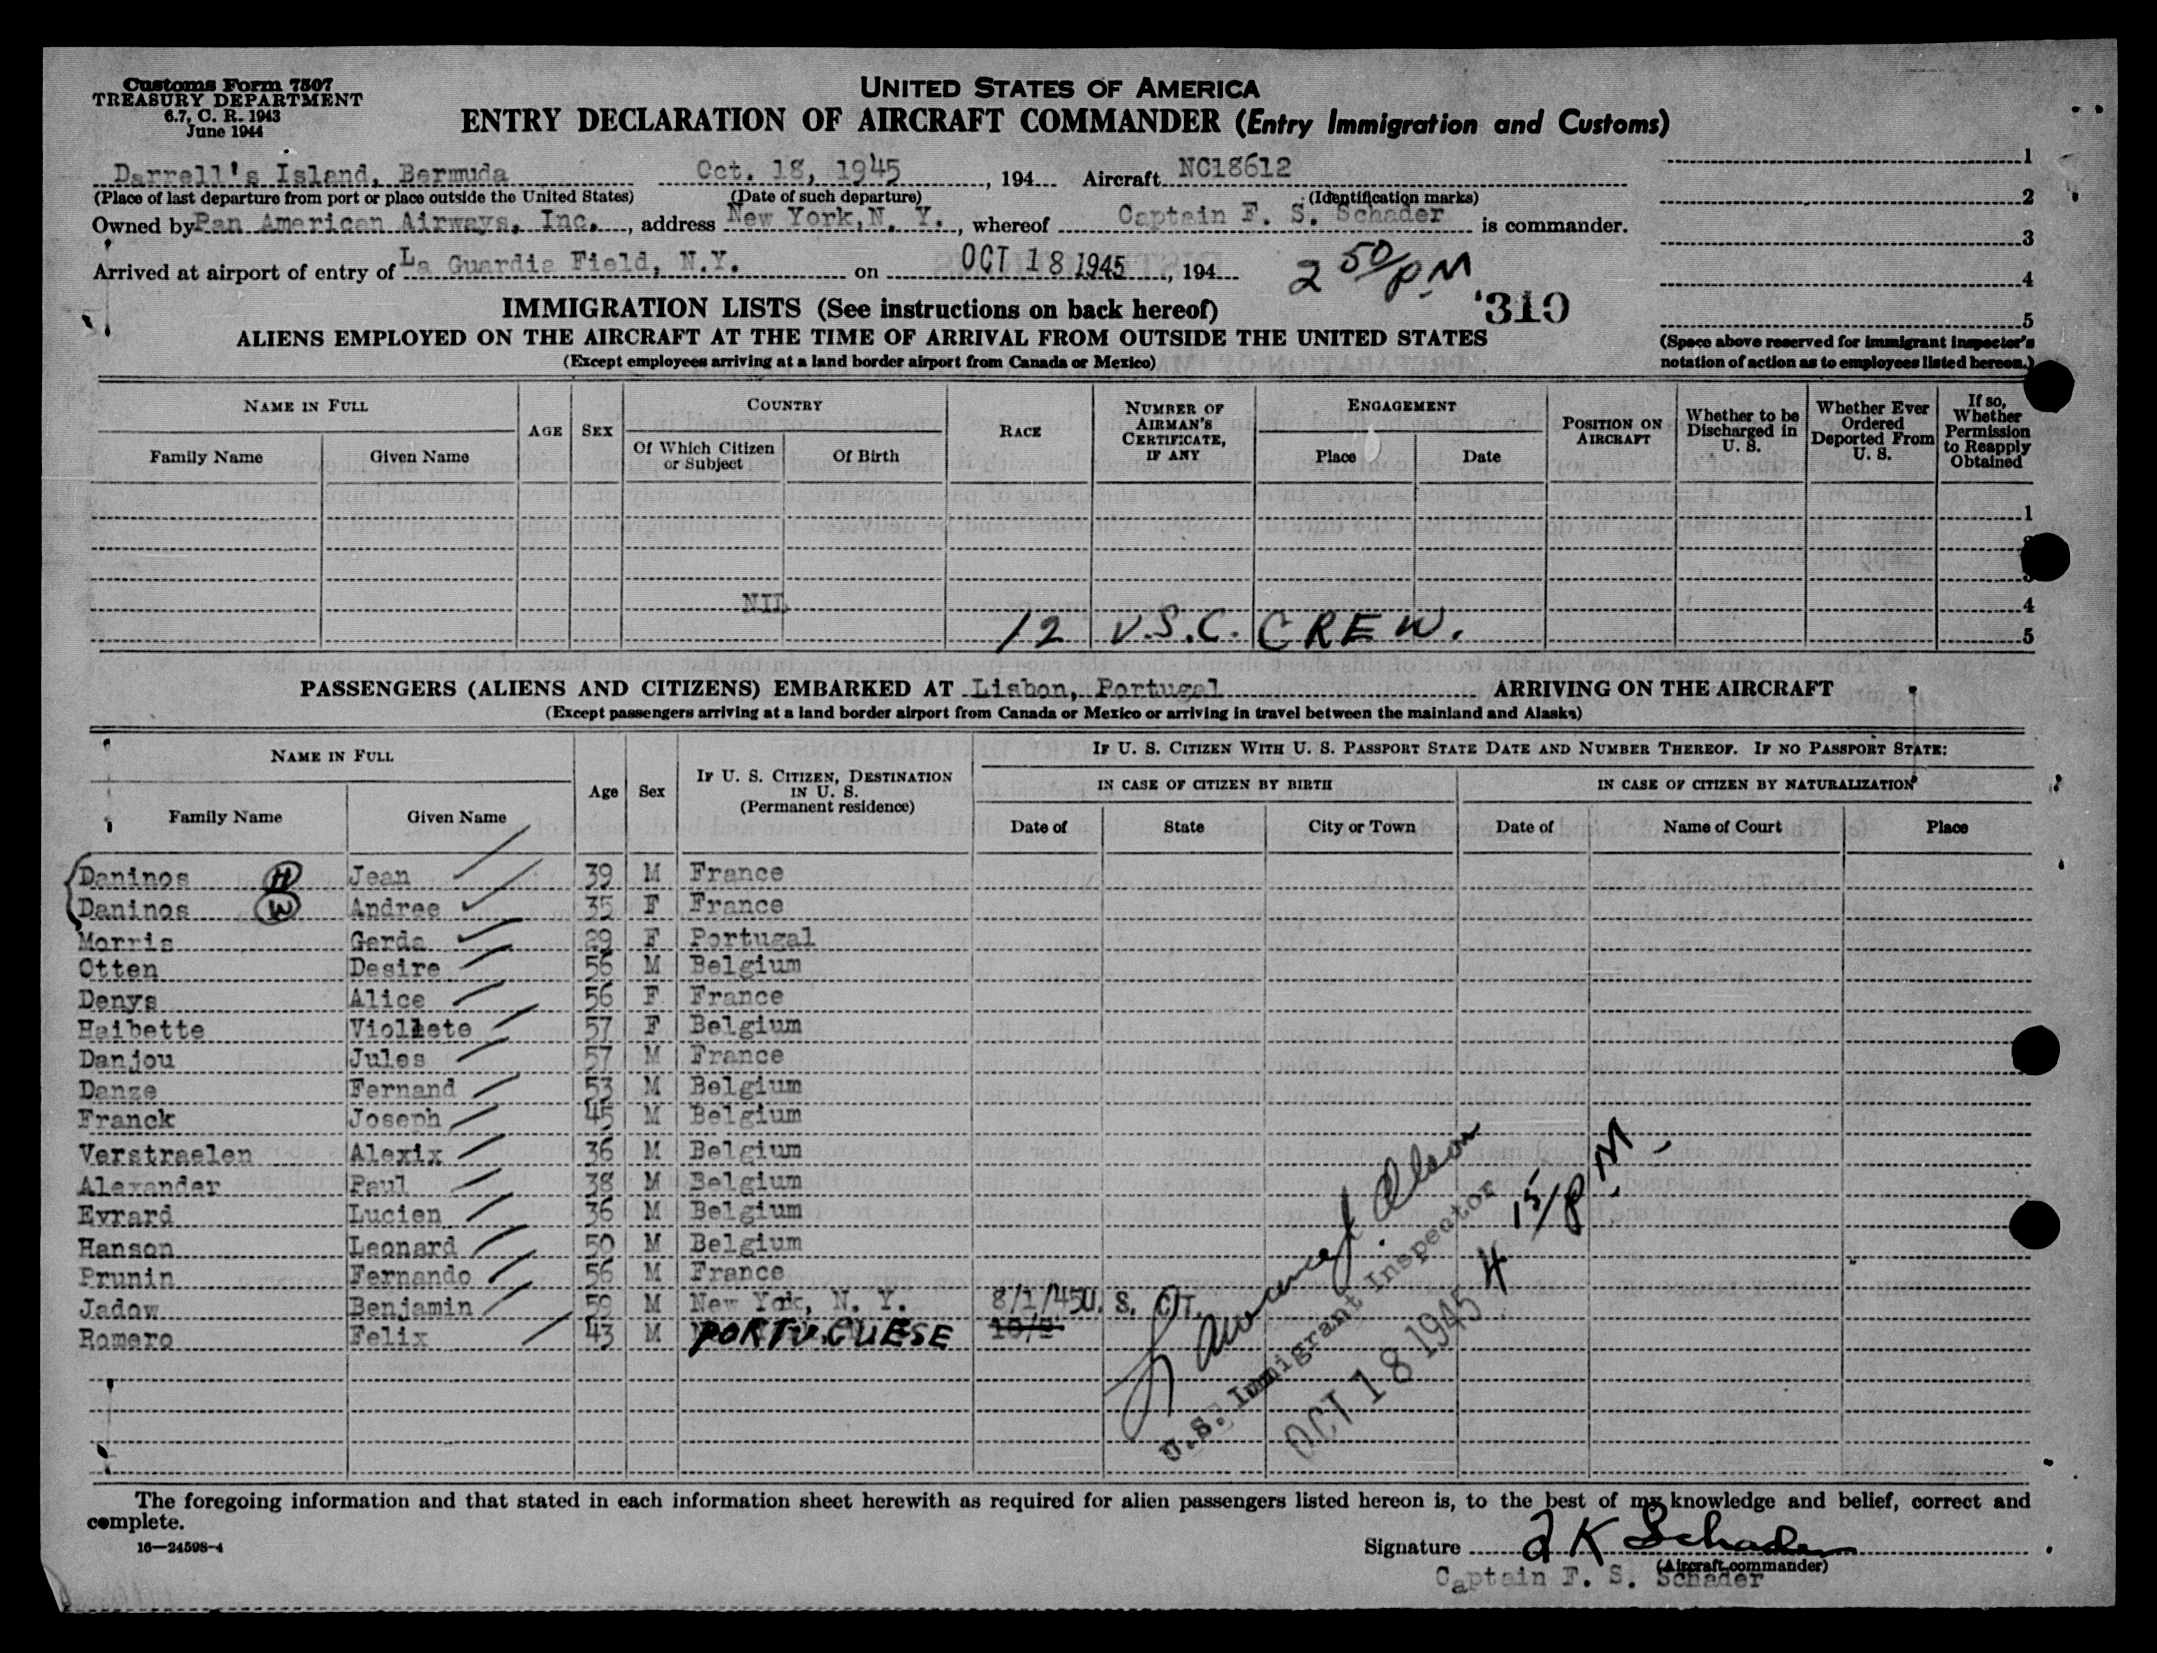 Customs Form 7507
TREASURY DEPARTMENT
6.7, C. R. 1943
June 1944
UNITED STATES OF AMERICA
ENTRY DECLARATION OF AIRCRAFT COMMANDER (Entry Immigration and Customs)
Darrell's Island, Bermuda Oct. 18, 1945, 194 Aircraft NC18612
(Place of last departure from port or place outside the United States) (Date of such departure) (Identification marks)
Owned by Pan American Airways, Inc., address New York, N. Y., whereof Captain F. S. Schader is commander.
Arrived at airport of entry of La Guardia Field, N.Y. on OCT 18 1945, 194 2 50/PM
1
2
3
4
5
(Space above reserved for immigrant inspector's notation of action as to employees listed hereon.)
310
IMMIGRATION LISTS (See instructions on back hereof)
ALIENS EMPLOYED ON THE AIRCRAFT AT THE TIME OF ARRIVAL FROM OUTSIDE THE UNITED STATES
(Except employees arriving at a land border airport from Canada or Mexico)
NAME IN FULL AGE SEX COUNTRY RACE NUMBER OF AIRMAN'S CERTIFICATE, IF ANY ENGAGEMENT POSITION ON AIRCRAFT Whether to be Discharged in U. S. Whether Ever Ordered Deported From U. S. If so, Whether Permission to Reapply Obtained
Family Name Given Name Of Which Citizen or Subject Of Birth Place Date
1
4
NIL
12 U.S.C. CREW. 5
PASSENGERS (ALIENS AND CITIZENS) EMBARKED AT Lisbon, Portugal ARRIVING ON THE AIRCRAFT
(Except passengers arriving at a land border airport from Canada or Mexico or arriving in travel between the mainland and Alaska)
NAME IN FULL Age Sex IF U. S. CITIZEN, DESTINATION IN U. S. (Permanent residence) IF U. S. CITIZEN WITH U. S. PASSPORT STATE DATE AND NUMBER THEREOF. IF NO PASSPORT STATE:
IN CASE OF CITIZEN BY BIRTH IN CASE OF CITIZEN BY NATURALIZATION
Family Name Given Name Date of State City or Town Date of Name of Court Place
Daninos H Jean 39 M France
Daninos W Andree 35 F France
Morris Gerda 29 F Portugal
Otten Desire 56 M Belgium
Denys Alice 56 F France
Haibette Viollete 57 F Belgium
Danjou Jules 57 M France
Danze Fernand 53 M Belgium
Franck Joseph 45 M Belgium
Verstraelen Alexix 36 M Belgium
Alexander Paul 38 M Belgium
Evrard Lucien 36 M Belgium
Hanson Leonard 50 M Belgium
Prunin Fernando 56 M France
Jadow Benjamin 59 M New Yok, N. Y. 8/1/45 U. S. CIT.
Romero Felix 43 M PORTUGUESE
Lawrence J. Olson
U.S. Immigrant Inspector
OCT 18 1945 4 15/PM
The foregoing information and that stated in each information sheet herewith as required for alien passengers listed hereon is, to the best of my knowledge and belief, correct and
complete.
16—24598-4
Signature F K Schader
(Aircraft commander)
Captain F. S. Schader